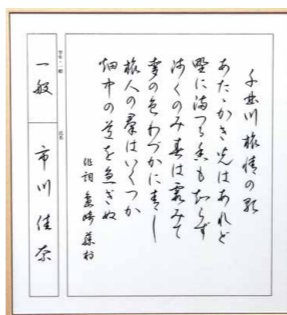 千曲川旅情の歌
あたゝかき光はあれど
野に満つる香も知らず
浅くのみ春は霞みて
麦の色わづかに青し
旅人の群はいくつか
畑中の道を急ぎぬ
作詞 島崎藤村
学年・一般
一般
氏名
市川佳奈